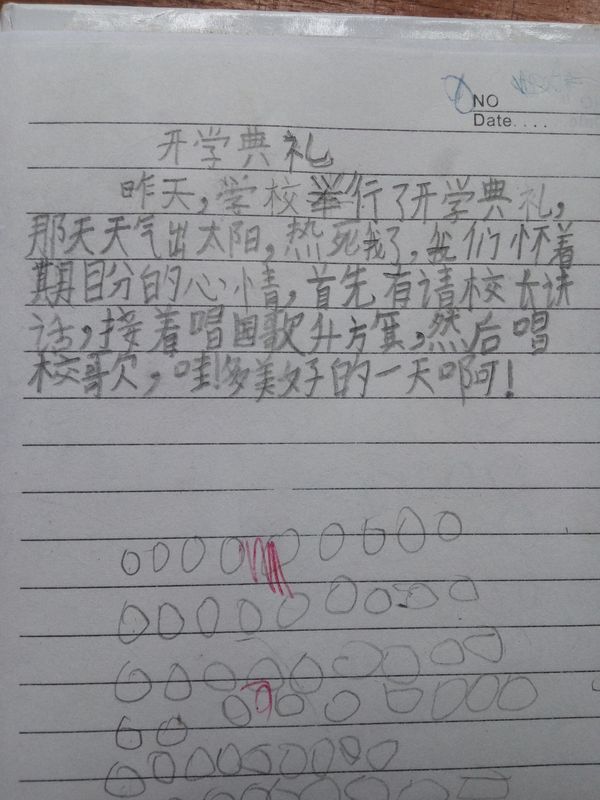 NO
Date....
开学典礼
昨天,学校举行了开学典礼,
那天天气出太阳,热死我了,我们怀着
期盼的心情,首先有请校长讲
话,接着唱国歌升方笙,然后唱
校歌,哇!多美好的一天啊!